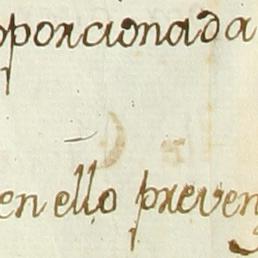 oporcionada
en ello preven